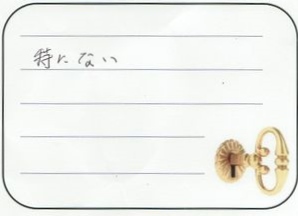 特にない